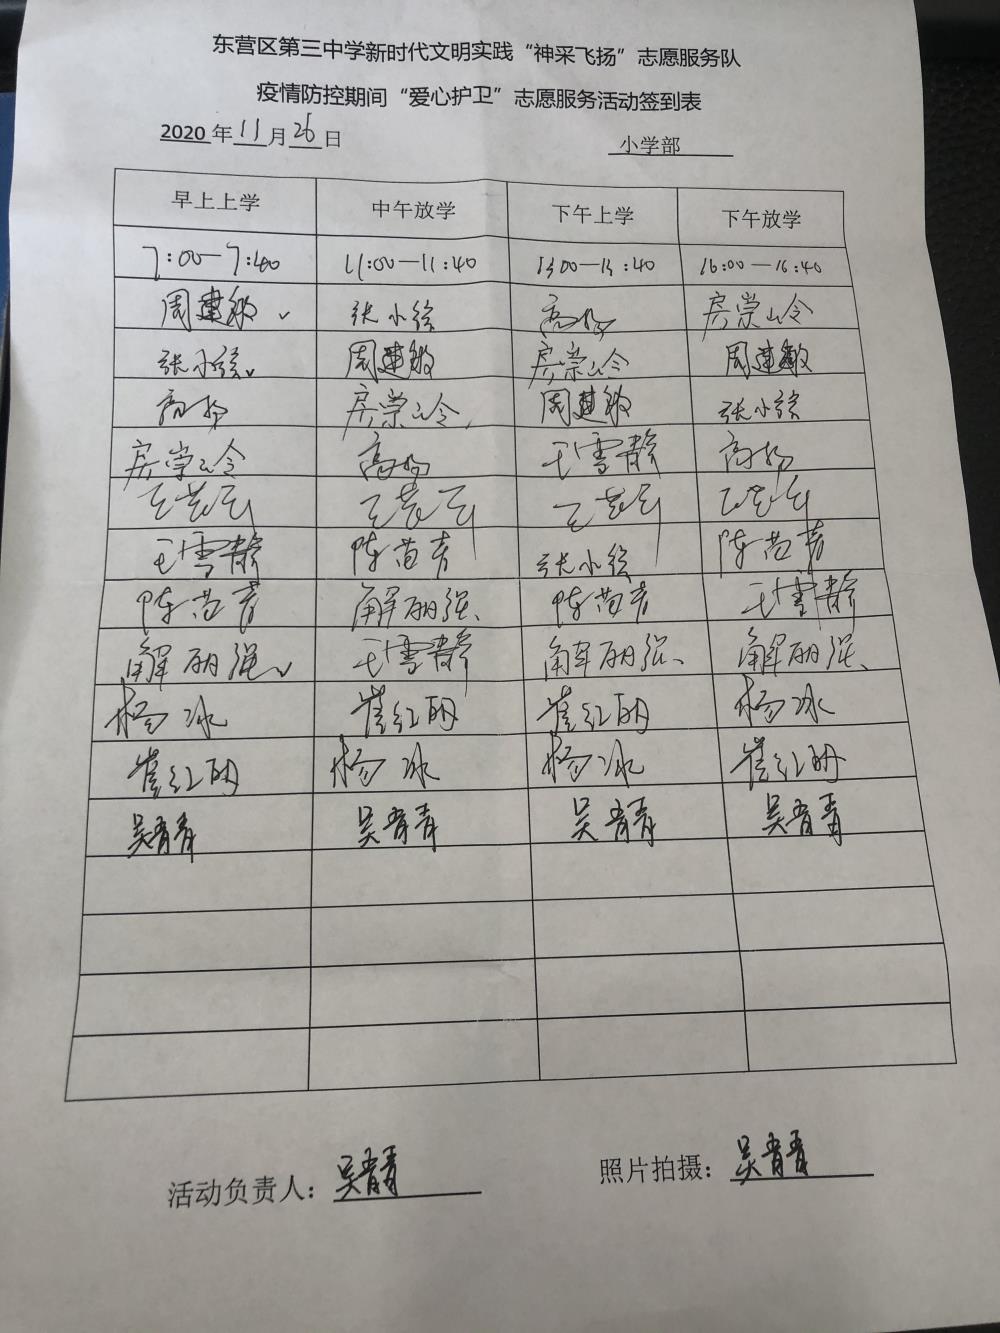 东营区第三中学新时代文明实践“神采飞扬”志愿服务队
疫情防控期间“爱心护卫”志愿服务活动签到表
2020 年 11 月 26 日 小学部
早上上学 中午放学 下午上学 下午放学
7:00—7:40 11:00—11:40 13:00—13:40 16:00—16:40
周建敏 张小弦 高扬 房崇岭
张小弦 周建敏 房崇岭 周建敏
高扬 房崇岭 周建敏 张小弦
房崇岭 高扬 王雪静 高扬
王雪静 陈苗青 张小弦 陈苗青
陈苗青 解丽强 陈苗青 王雪静
解丽强 王雪静 解丽强 解丽强
杨冰 崔红明 崔红明 杨冰
崔红明 杨冰 杨冰 崔红明
吴青青 吴青青 吴青青 吴青青
活动负责人：吴青青 照片拍摄：吴青青